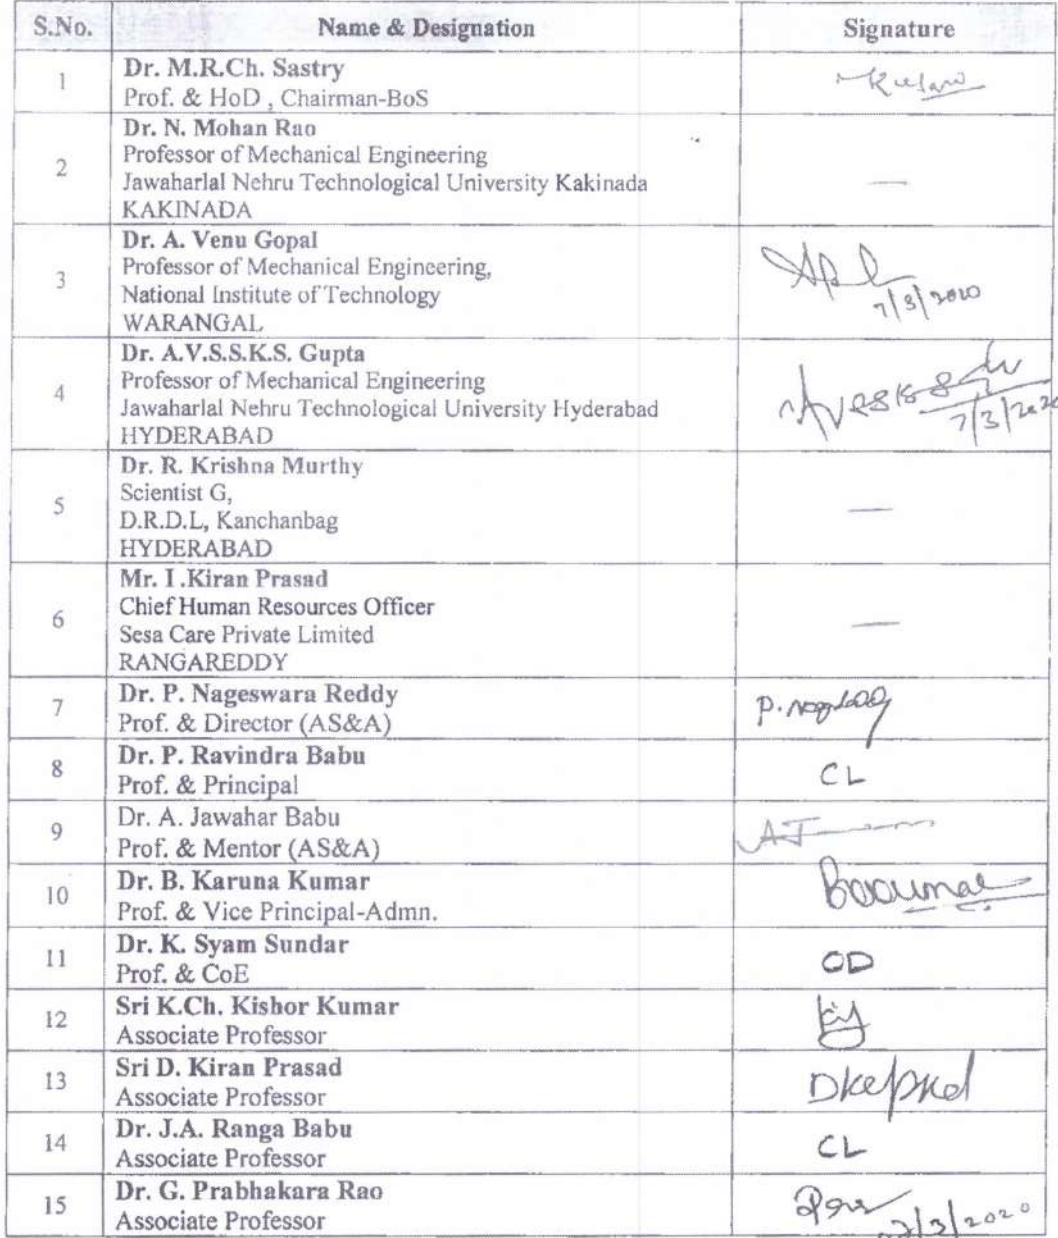 S.No. Name & Designation Signature
1 Dr. M.R.Ch. Sastry
Prof. & HoD , Chairman-BoS
Dr. N. Mohan Rao
Professor of Mechanical Engineering
2 Jawaharlal Nehru Technological University Kakinada —
KAKINADA
Dr. A. Venu Gopal
3 Professor of Mechanical Engineering,
National Institute of Technology 7/3/2020
WARANGAL
Dr. A.V.S.S.K.S. Gupta
4 Professor of Mechanical Engineering
Jawaharlal Nehru Technological University Hyderabad 7/3/2020
HYDERABAD
Dr. R. Krishna Murthy
Scientist G,
5 D.R.D.L, Kanchanbag —
HYDERABAD
Mr. I .Kiran Prasad
Chief Human Resources Officer
6 Sesa Care Private Limited —
RANGAREDDY
7 Dr. P. Nageswara Reddy
Prof. & Director (AS&A)
8 Dr. P. Ravindra Babu CL
Prof. & Principal
9 Dr. A. Jawahar Babu
Prof. & Mentor (AS&A)
10 Dr. B. Karuna Kumar
Prof. & Vice Principal-Admn.
11 Dr. K. Syam Sundar OD
Prof. & CoE
12 Sri K.Ch. Kishor Kumar
Associate Professor
13 Sri D. Kiran Prasad
Associate Professor
14 Dr. J.A. Ranga Babu CL
Associate Professor
15 Dr. G. Prabhakara Rao
Associate Professor 7/3/2020